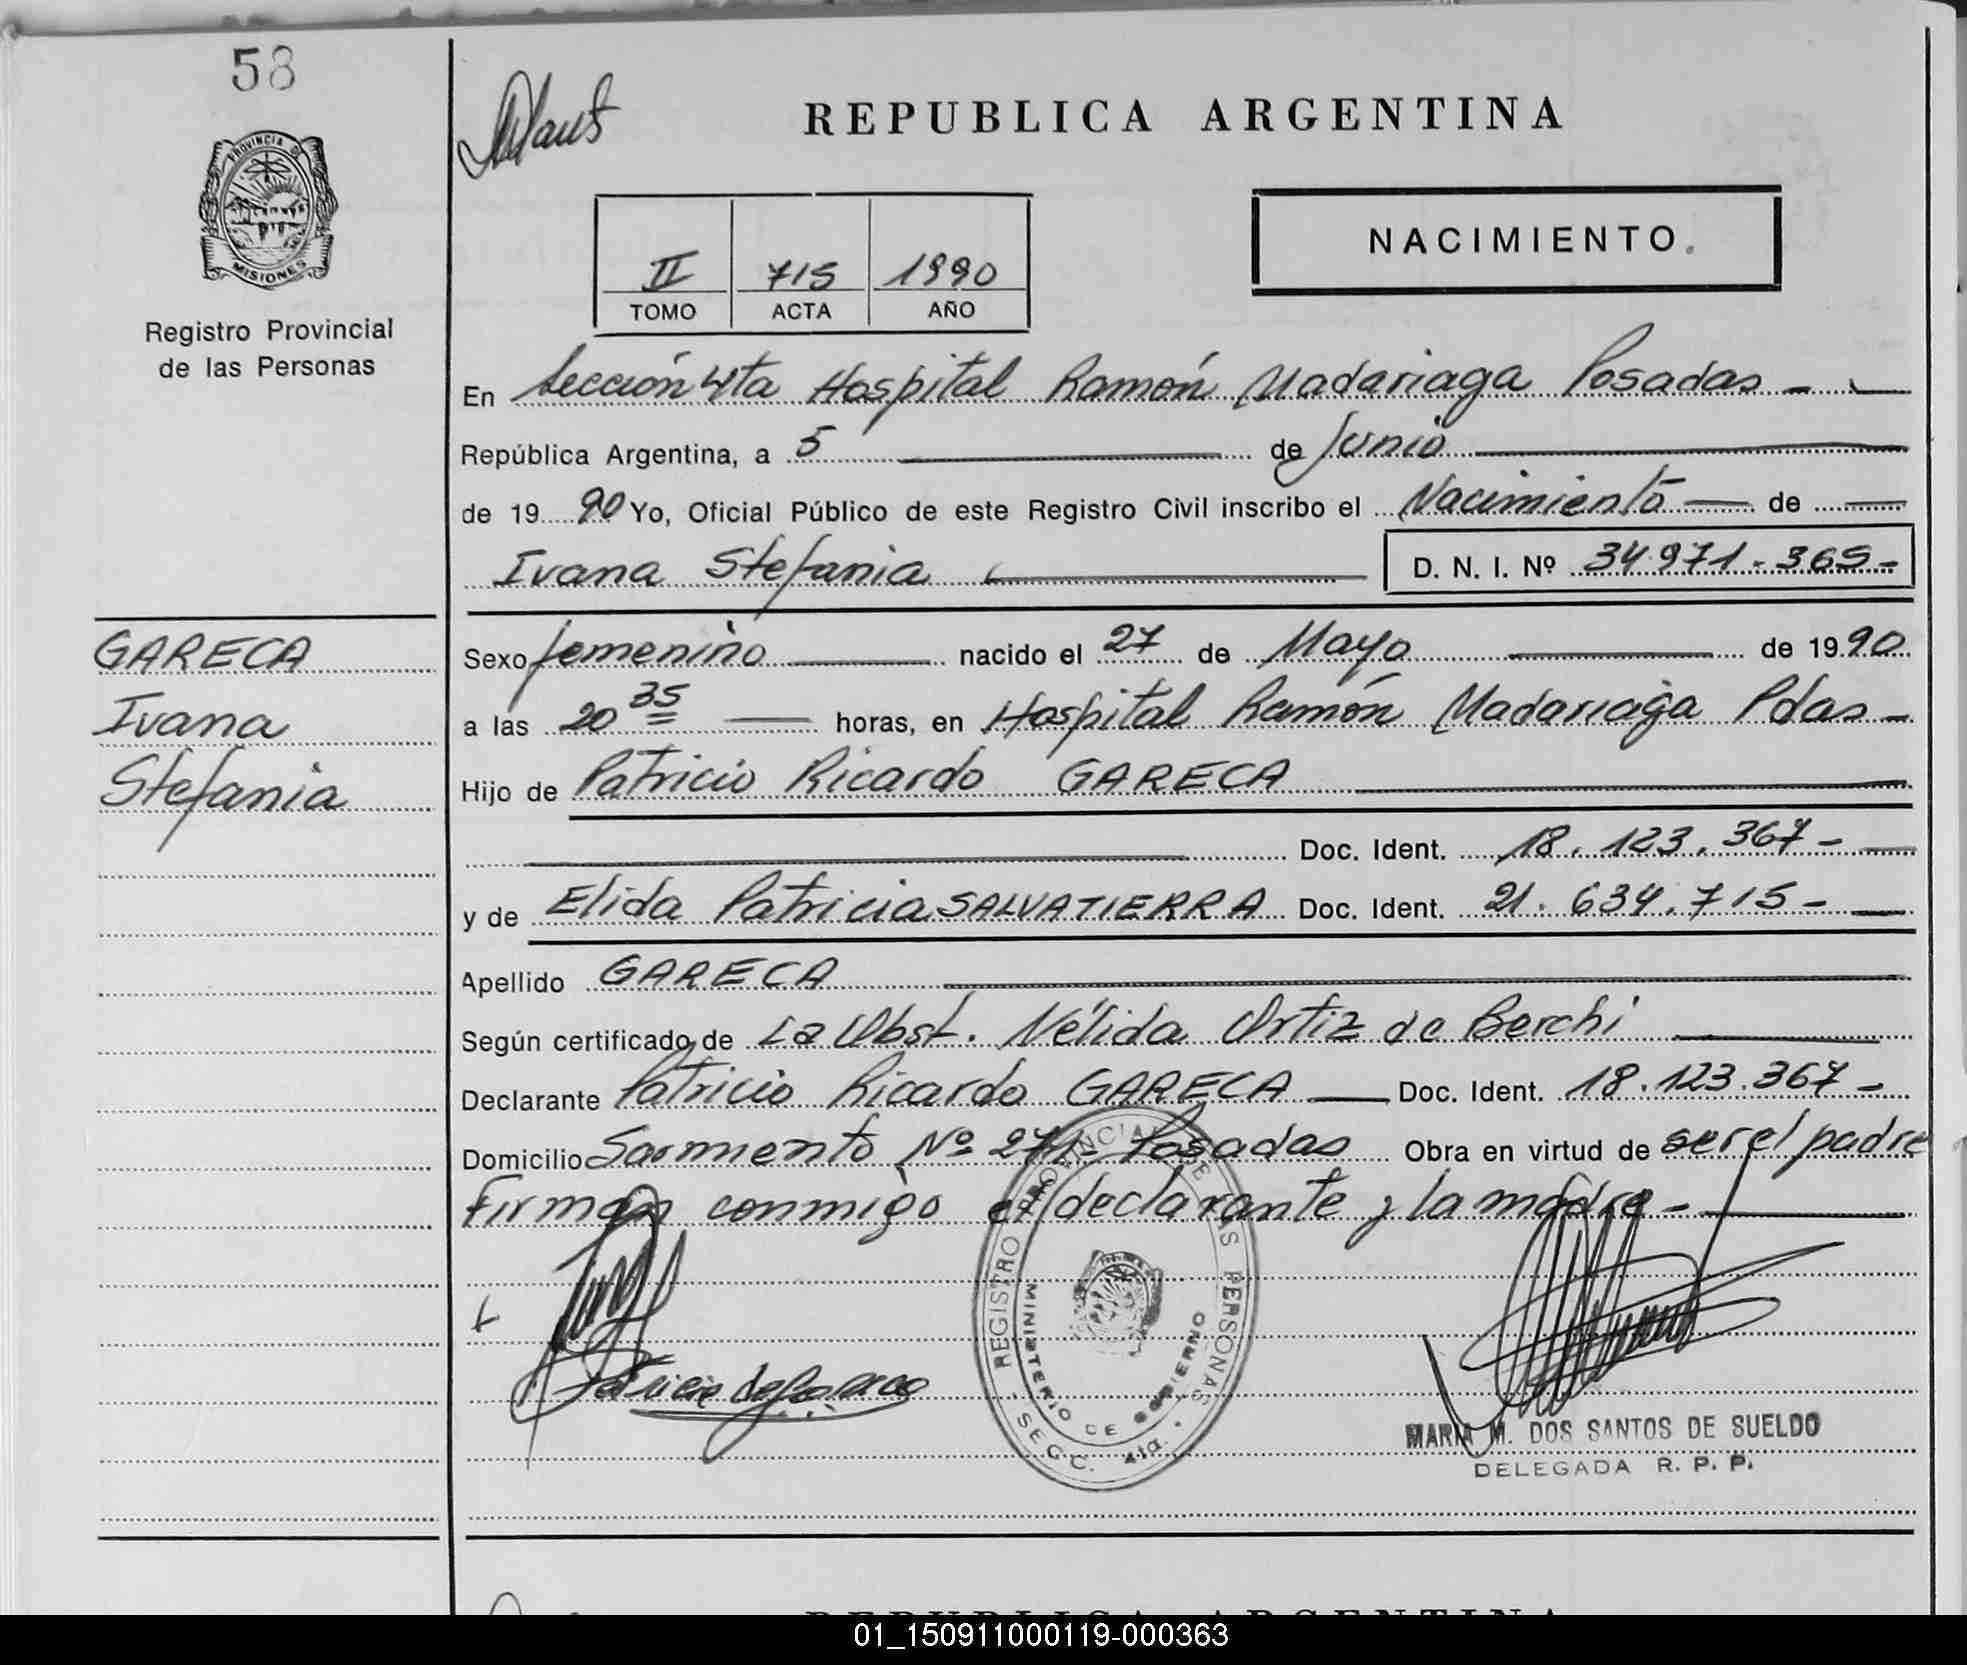 58
REPUBLICA ARGENTINA
PROVINCIA DE
MISIONES
Registro Provincial
de las Personas
II 715 1990
TOMO ACTA AÑO
NACIMIENTO.
En Sección 4ta Hospital Ramón Madariaga Posadas -
República Argentina, a 5 de Junio
de 19 90 Yo, Oficial Público de este Registro Civil inscribo el Nacimiento de
Ivana Stefania D. N. I. Nº 34.971.365-
GARECA
Ivana
Stefania
Sexo femenino nacido el 27 de Mayo de 1990
a las 20 35 horas, en Hospital Ramón Madariaga Pdas -
Hijo de Patricio Ricardo GARECA
Doc. Ident. 18.123.367-
y de Elida Patricia SALVATIERRA Doc. Ident. 21.634.715-
Apellido GARECA
Según certificado de La Obst. Nélida Ortiz de Berchi
Declarante Patricio Ricardo GARECA Doc. Ident. 18.123.367-
Domicilio Sarmiento Nº 271- Posadas Obra en virtud de ser el padre
Firman conmigo el declarante y la madre -
REGISTRO PROVINCIAL DE LAS PERSONAS
MINISTERIO DE GOBIERNO
SECC. 4ta.
MARIA M. DOS SANTOS DE SUELDO
DELEGADA R. P. P.
REPUBLICA ARGENTINA
01_150911000119-000363